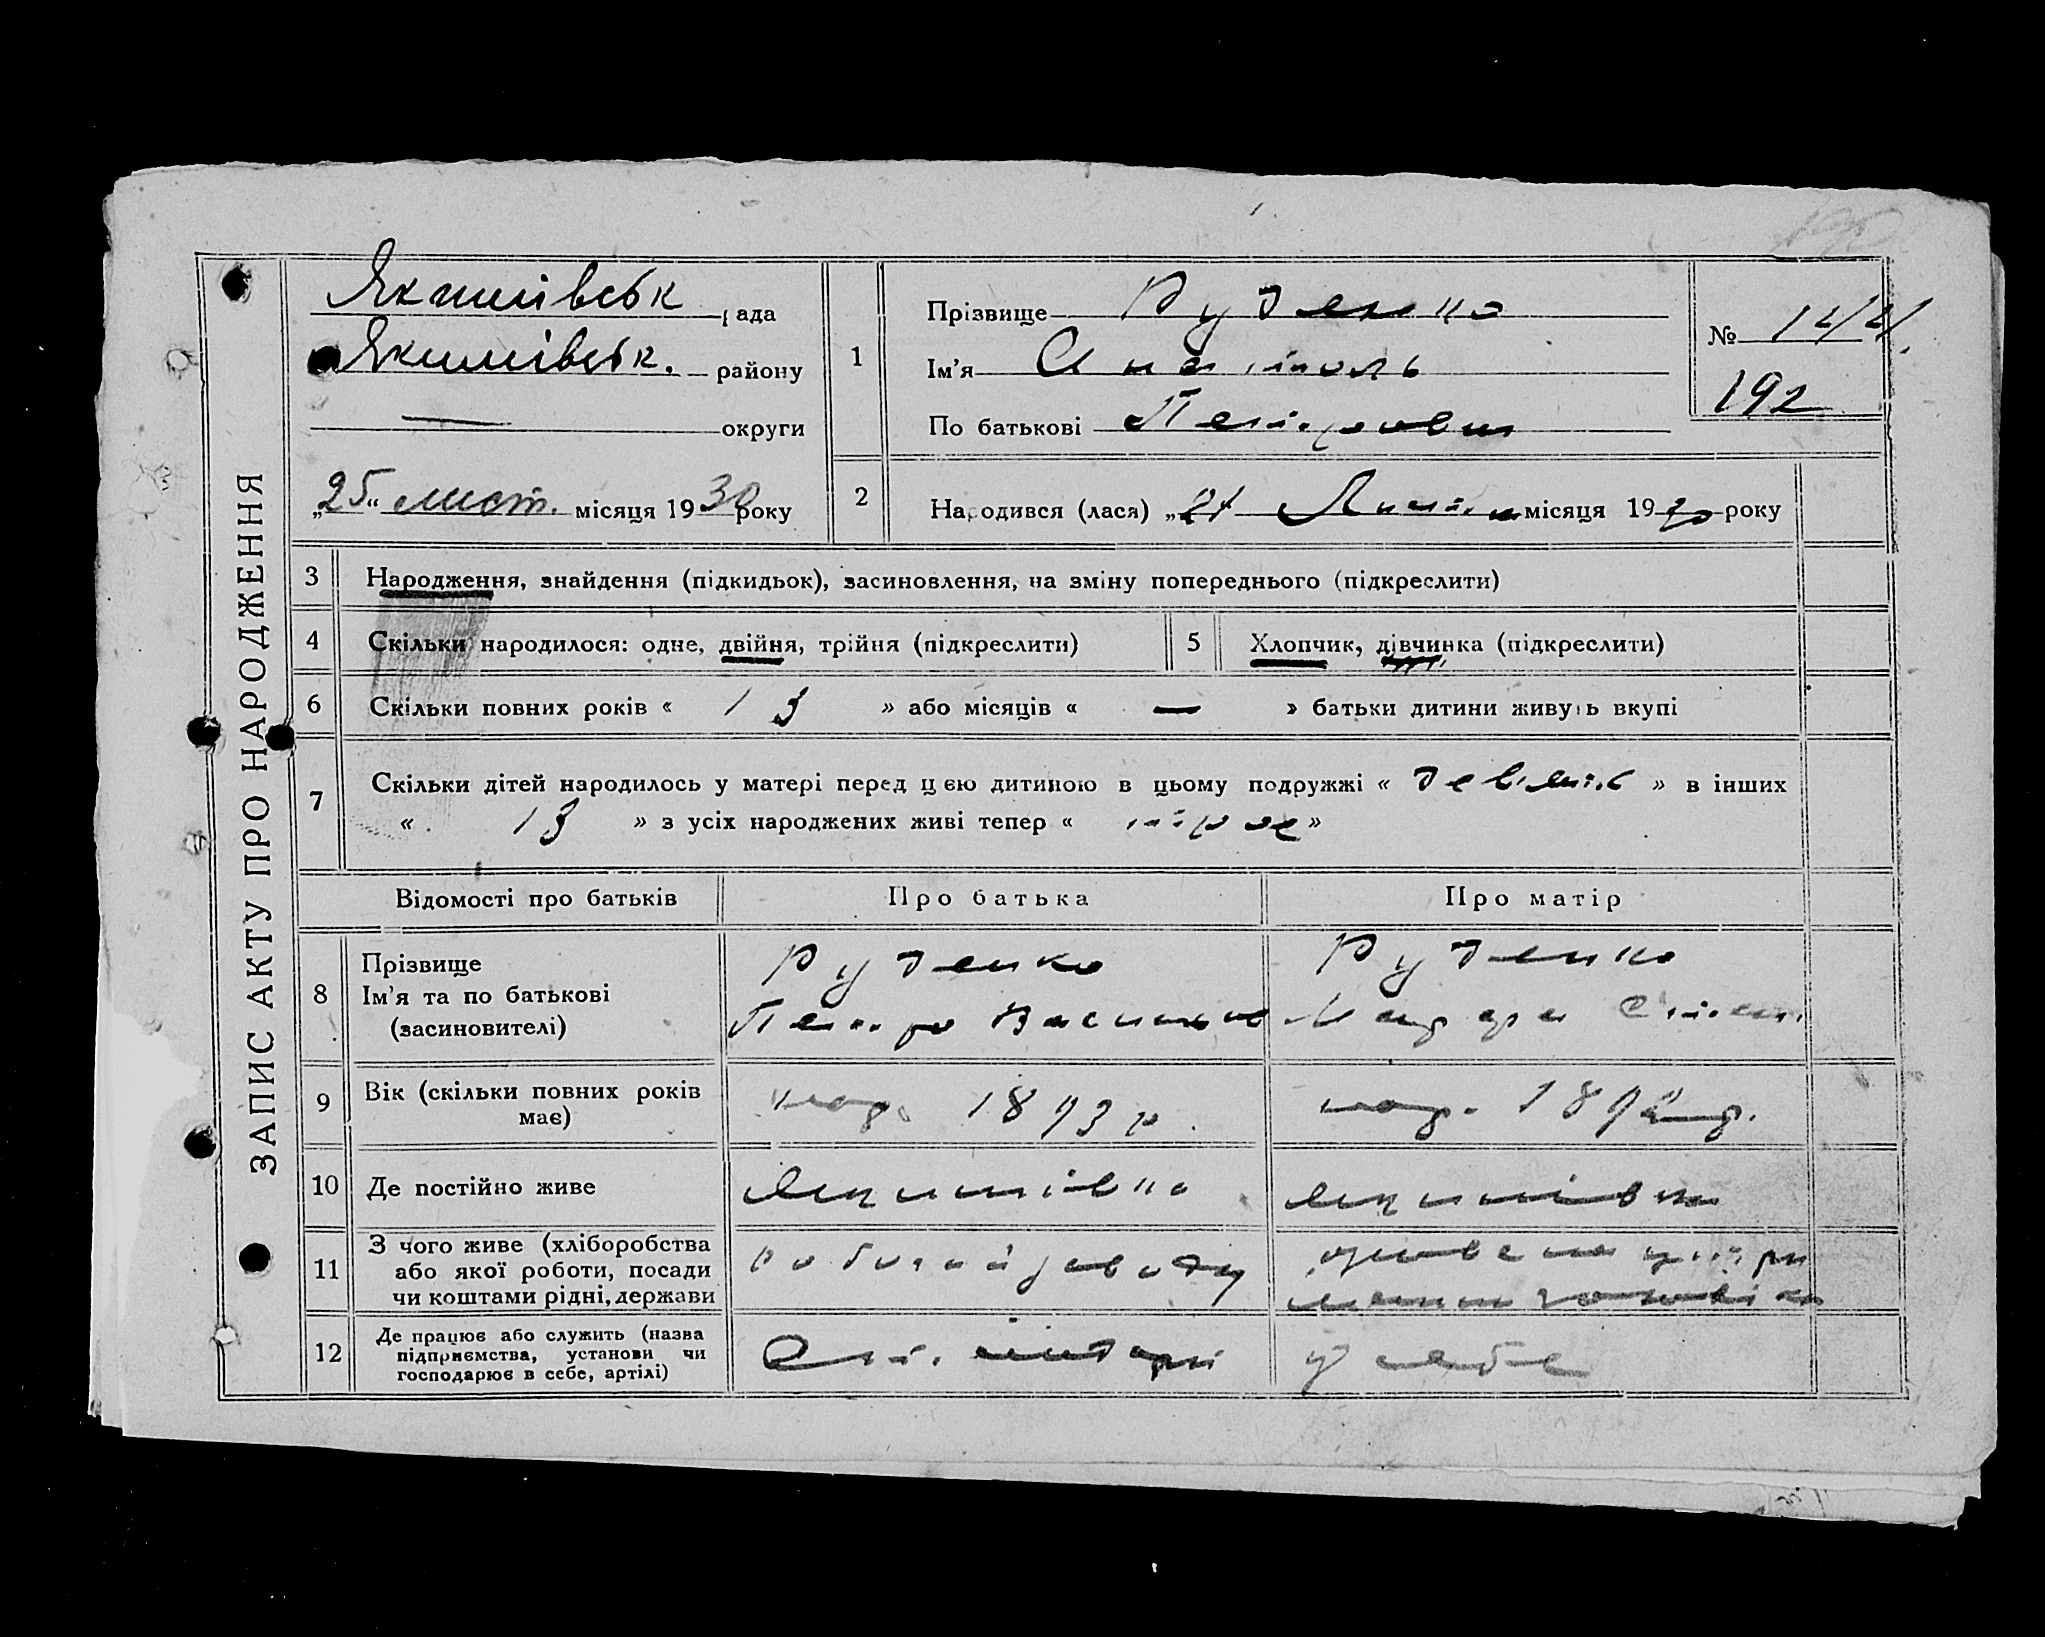 ЗАПИС АКТУ ПРО НАРОДЖЕННЯ
Якимівськ рада
Якимівськ. району
— округи
„25“ лист. місяця 1930 року
1
Прізвище Руденко
Ім'я Анатоль
По батькові Петрович
№
192
2
Народився (лася) „21 місяця 1930 року
3 Народження, знайдення (підкидьок), засиновлення, на зміну попереднього (підкреслити)
4 Скільки народилося: одне, двійня, трійня (підкреслити) 5 Хлопчик, дівчинка (підкреслити)
6 Скільки повних років « 13 » або місяців « — » батьки дитини живуть вкупі
7 Скільки дітей народилось у матері перед цею дитиною в цьому подружжі « девять » в інших
« 13 » з усіх народжених живі тепер « трое »
Відомості про батьків Про батька Про матір
8 Прізвище Руденко Руденко
Ім'я та по батькові Петро
(засиновителі)
9 Вік (скільки повних років має) нар. 1893 р. нар.
10 Де постійно живе Якимівка Якимівка
11 З чого живе (хліборобства
або якої роботи, посади
чи коштами рідні, держави
12 Де працює або служить (назва
підприємства, установи чи
господарює в себе, артілі)
у себе